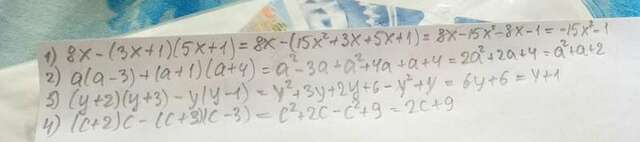 1) 8x-(3x+1)(5x+1)=8x-(15x²+3x+5x+1)=8x-15x²-8x-1=-15x²-1
2) a(a-3)+(a+1)(a+4)=a²-3a+a²+4a+a+4=2a²+2a+4=a²+a+2
3) (y+2)(y+3)-y(y-1)=y²+3y+2y+6-y²+y=6y+6=y+1
4) (c+2)c-(c+3)(c-3)=c²+2c-c²+9=2c+9